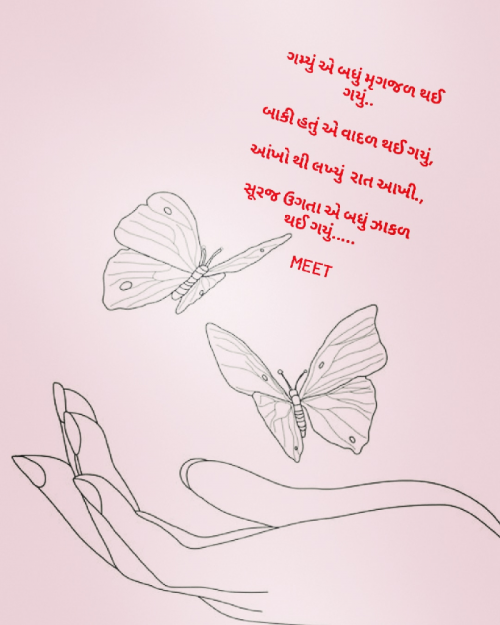 ગમ્યું એ બધું મૃગજળ થઈ
ગયું..
બાકી હતું એ વાદળ થઈ ગયું,
આંખો થી લખ્યું રાત આખી.,
સૂરજ ઉગતા એ બધું ઝાકળ
થઈ ગયું.....
MEET